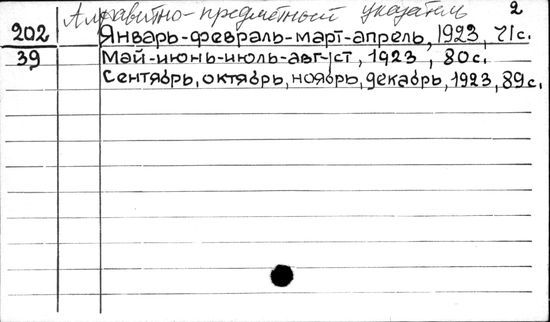 Алфавитно-предметный указатель 2
202 Январь-февраль-март-апрель, 1923, 71с.
39 Май-июнь-июль-август, 1923, 80с.
Сентябрь, октябрь, ноябрь, декабрь, 1923, 89с.